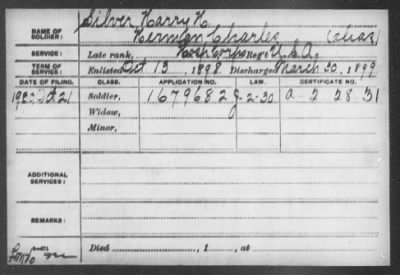 Silver, Harry H.
NAME OF SOLDIER: Herman, Charles (alias)
SERVICE: Late rank, Hosp Corps Reg't U.S.A.
TERM OF SERVICE: Enlisted Oct 13, 1898 Discharged March 30, 1899
DATE OF FILING. CLASS. APPLICATION NO. LAW. CERTIFICATE NO.
Soldier, 1679682 J-2-30 a-2 28 31
Widow,
Minor,
ADDITIONAL SERVICES:
REMARKS:
Died , 1 , at